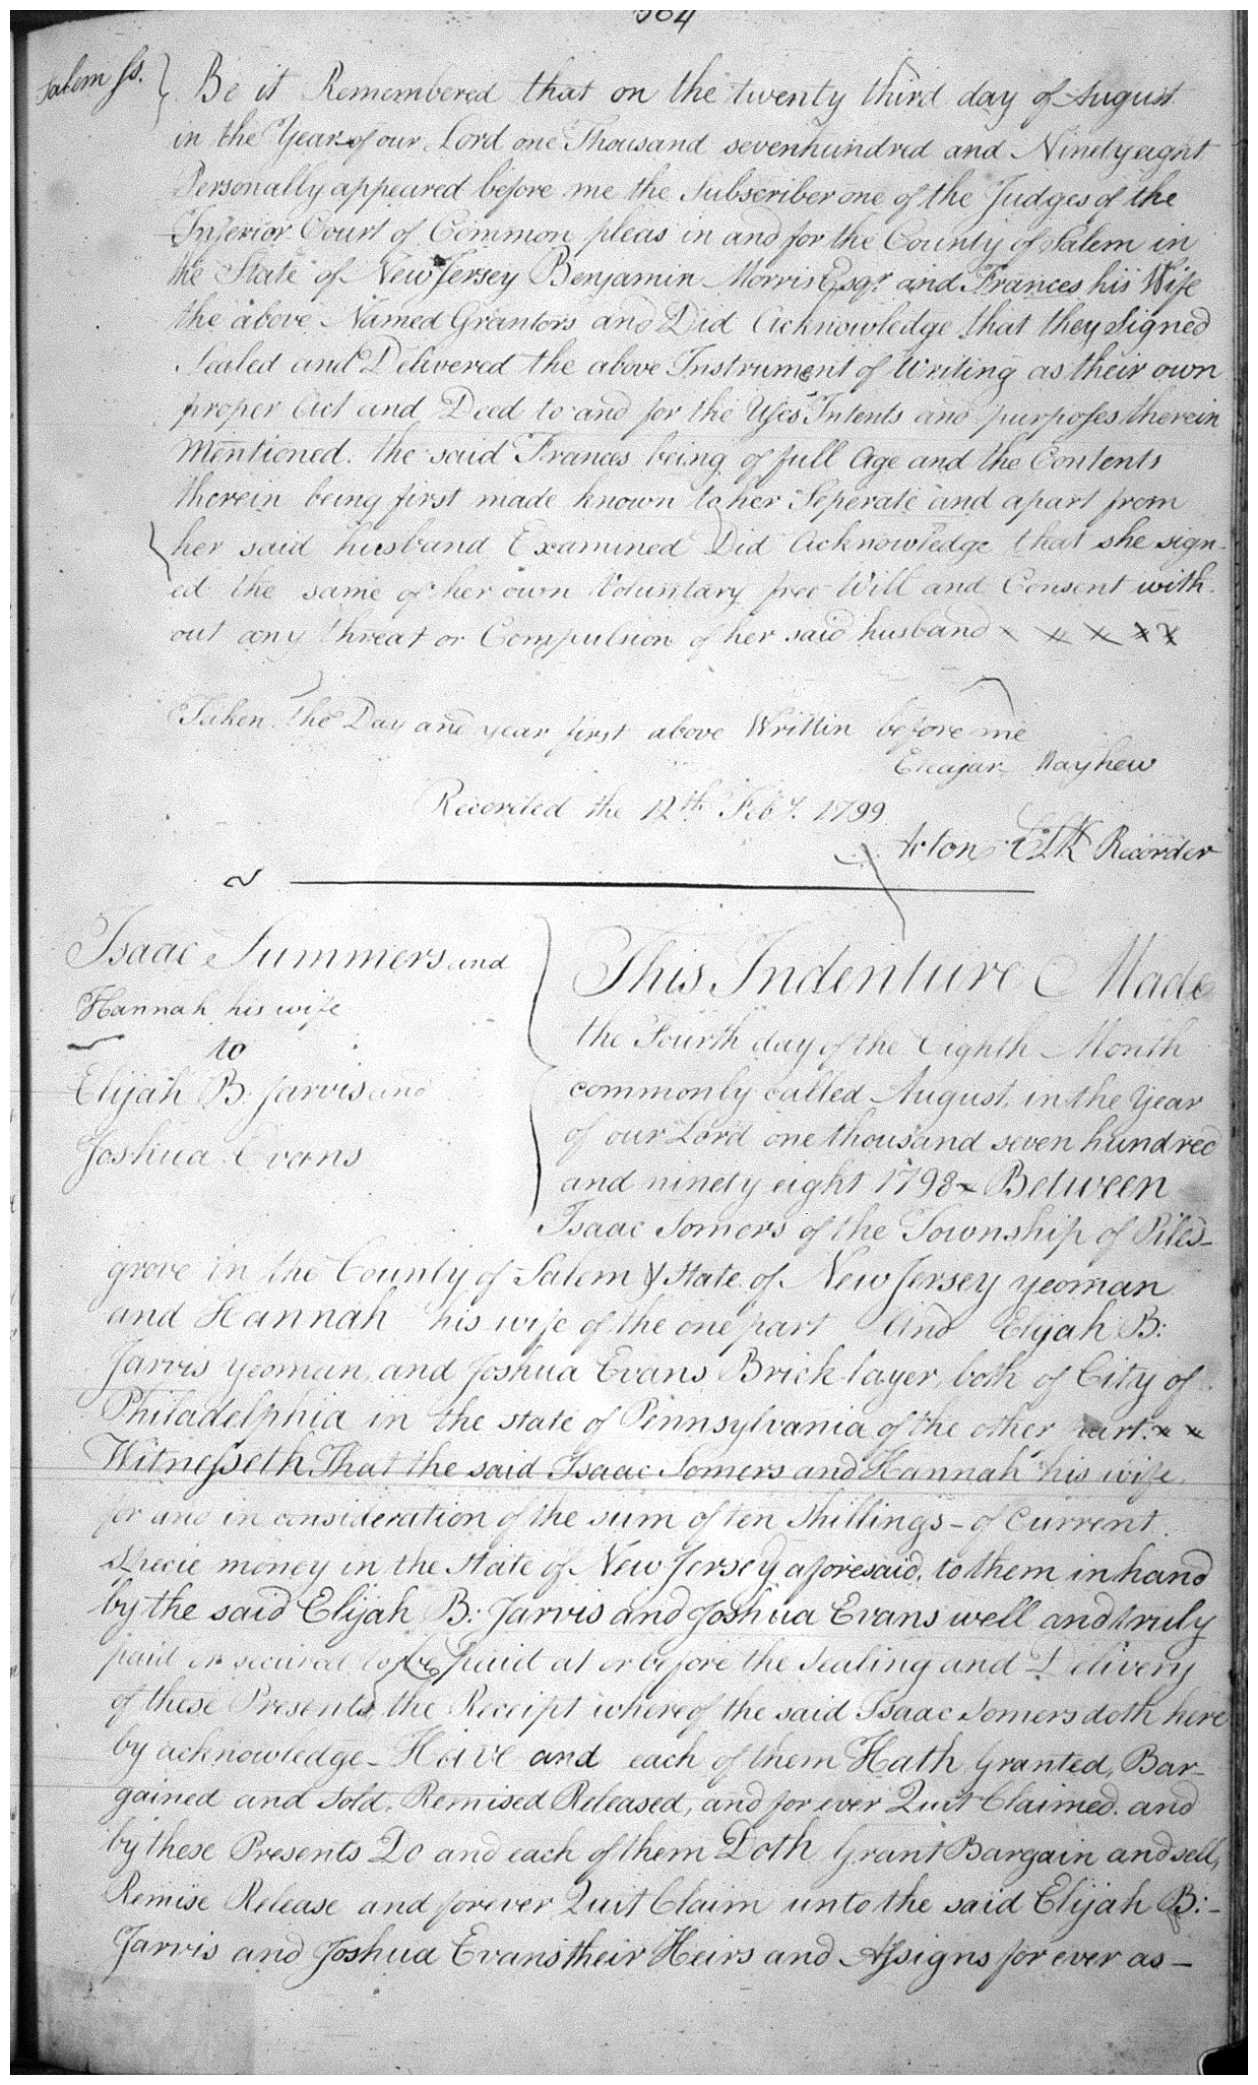 364
Salem ss. Be it Remembered that on the twenty third day of August
in the Year of our Lord one Thousand sevenhundred and Ninety aght
Personally appeared before me the Subscriber one of the Judges of the
Inferior Court of Common pleas in and for the County of Salem in
the State of New Jersey Benjamin Morris Esqr. and Frances his Wife
the above Named Grantors and Did Acknowledge that they Signed
Sealed and Delivered the above Instrument of Writing as their own
proper Act and Deed to and for the Uses Intents and purposes therein
Mentioned. the said Frances being of full Age and the Contents
therein being first made known to her Seperate and apart from
her said husband Examined Did Acknowledge that she sign-
ed the same of her own Voluntary free Will and Consent with-
out any threat or Compulsion of her said husband x x x x x
Taken the Day and year first above Writtin before me
Eleajar Mayhew
Recorded the 12th Feby. 1799
Acton Clk Recorder
Isaac Summers and
Hannah his wife
to
Elijah B. Jarvis and
Joshua Evans
This Indenture Made
the Fourth day of the Eighth Month
commonly called August, in the Year
of our Lord one thousand seven hundred
and ninety eight 1798 - Between
Isaac Somers of the Township of Piles-
grove in the County of Salem & State of New Jersey yeoman
and Hannah his wife of the one part And Elijah B:
Jarvis yeoman, and Joshua Evans Brick-layer, both of City of
Philadelphia in the state of Pennsylvania of the other part. x x
Witnesseth, That the said Isaac Somers and Hannah his wife,
for and in consideration of the sum of ten Shillings - of Current
Specie money in the State of New Jersey aforesaid, to them in hand
by the said Elijah B: Jarvis and Joshua Evans well and truly
paid or secured to be paid at or before the Sealing and Delivery
of these Presents, the Receipt whereof the said Isaac Somers doth here
by acknowledge - Have and each of them Hath Granted, Bar-
gained and Sold, Remised Released, and for ever Quit Claimed. and
by these Presents Do and each of them Doth Grant Bargain and sell,
Remise Release and forever Quit Claim unto the said Elijah B: -
Jarvis and Joshua Evans their Heirs and Assigns for ever as -